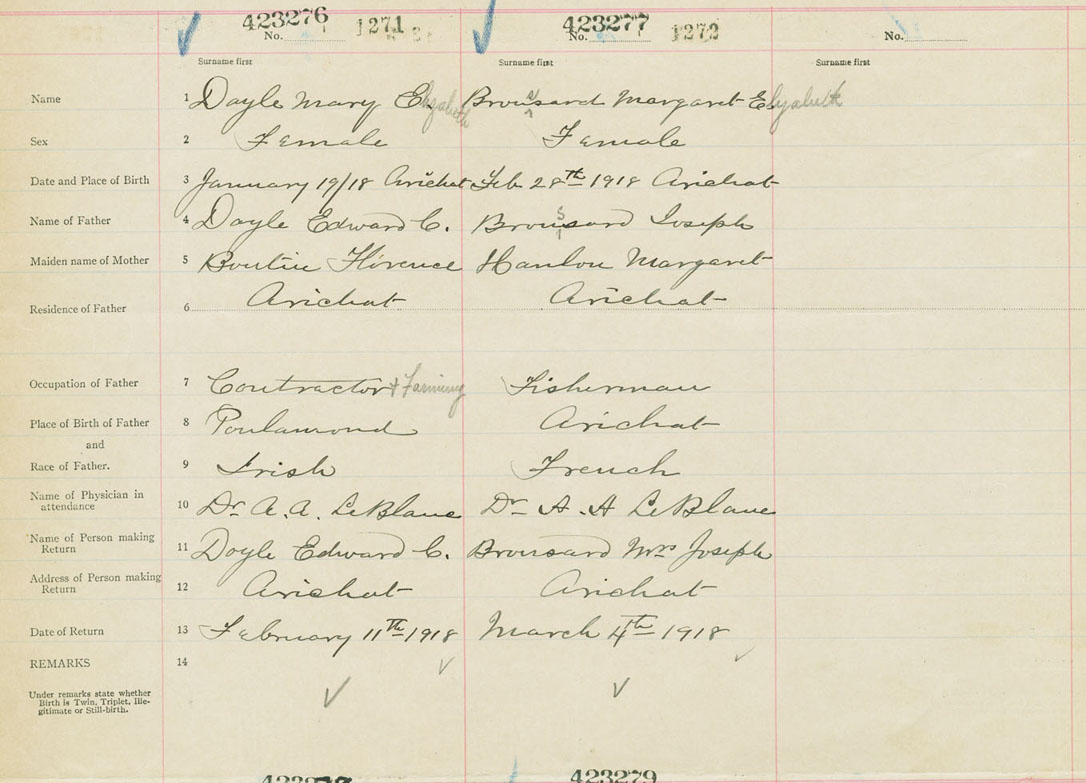 423276 1271 423277 1272
No. No. No.
Surname first Surname first Surname first
Name 1 Doyle Mary Elizabeth Broussard Margaret Elizabeth
Sex 2 Female Female
Date and Place of Birth 3 January 19/18 Arichat Feb 28th 1918 Arichat
Name of Father 4 Doyle Edward C. Broussard Joseph
Maiden name of Mother 5 Boutin Florence Hanlon Margaret
Arichat Arichat
Residence of Father 6
Occupation of Father 7 Contractor + Farming Fisherman
Place of Birth of Father 8 Poulamond Arichat
and
Race of Father. 9 Irish French
Name of Physician in
attendance 10 Dr. A. A. LeBlanc Dr A. A LeBlanc
Name of Person making
Return 11 Doyle Edward C. Brousard Mrs Joseph
Address of Person making
Return 12 Arichat Arichat
Date of Return 13 February 11th 1918 March 4th 1918
REMARKS 14
Under remarks state whether
Birth is Twin, Triplet, Ille-
gitimate or Still-birth.
423279